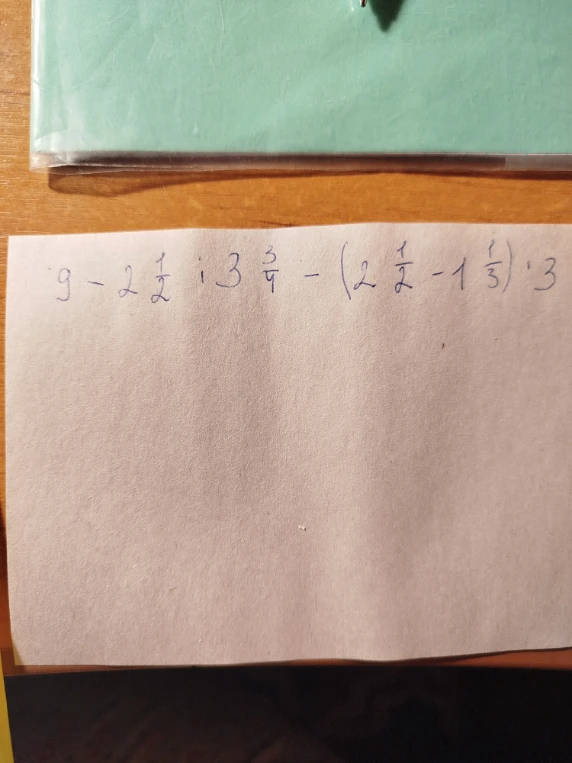 9 - 2 1/2 : 3 3/4 - (2 1/2 - 1 1/3) · 3